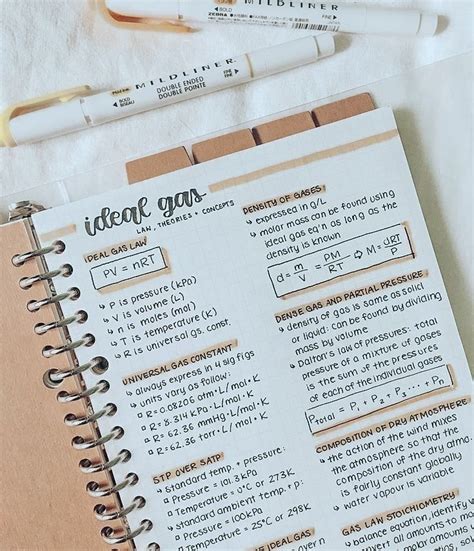 BOLD
ZEBRA
MILDLINER
FINE
BOLD
BOLDEAU
MILDLINER
DOUBLE ENDED
DOUBLE POINTE
FINE
FINE
ideal gas
LAW, THEORIES + CONCEPTS
IDEAL GAS LAW
PV = nRT
↳ P is pressure (kPa)
↳ V is volume (L)
↳ n is moles (mol)
↳ T is temperature (K)
↳ R is universal gs. const.
UNIVERSAL GAS CONSTANT
↳ always express in 4 sig figs
↳ units vary as follow:
▫ R = 0.08206 atm·L/mol·K
▫ R = 8.314 kPa·L/mol·K
▫ R = 62.36 mmHg·L/mol·K
▫ R = 62.36 torr·L/mol·K
STP OVER SATP
↳ standard temp. + pressure:
▫ Pressure = 101.3 kPa
▫ Temperature = 0°C or 273K
↳ standard ambient temp + p:
▫ Pressure = 100kPa
▫ Temperature = 25°C or 298K
IDEAL GAS
DENSITY OF GASES
↳ expressed in g/L
↳ molar mass can be found using
ideal gas eq'n as long as the
density is known
d = m/V = PM/RT ➪ M = dRT/P
DENSE GAS AND PARTIAL PRESSURE
↳ density of gas is same as solid
or liquid: can be found by dividing
mass by volume
↳ Dalton's law of pressures: total
pressure of a mixture of gases
is the sum of the pressures
of each of the individual gases
Ptotal = P₁ + P₂ + P₃ ... + Pn
COMPOSITION OF DRY ATMOSPHERE
↳ the action of the wind mixes
the atmosphere so that the
composition of the dry atmo.
is fairly constant globally
↳ water vapour is variable
GAS LAW STOICHIOMETRY
↳ balance equation, identify